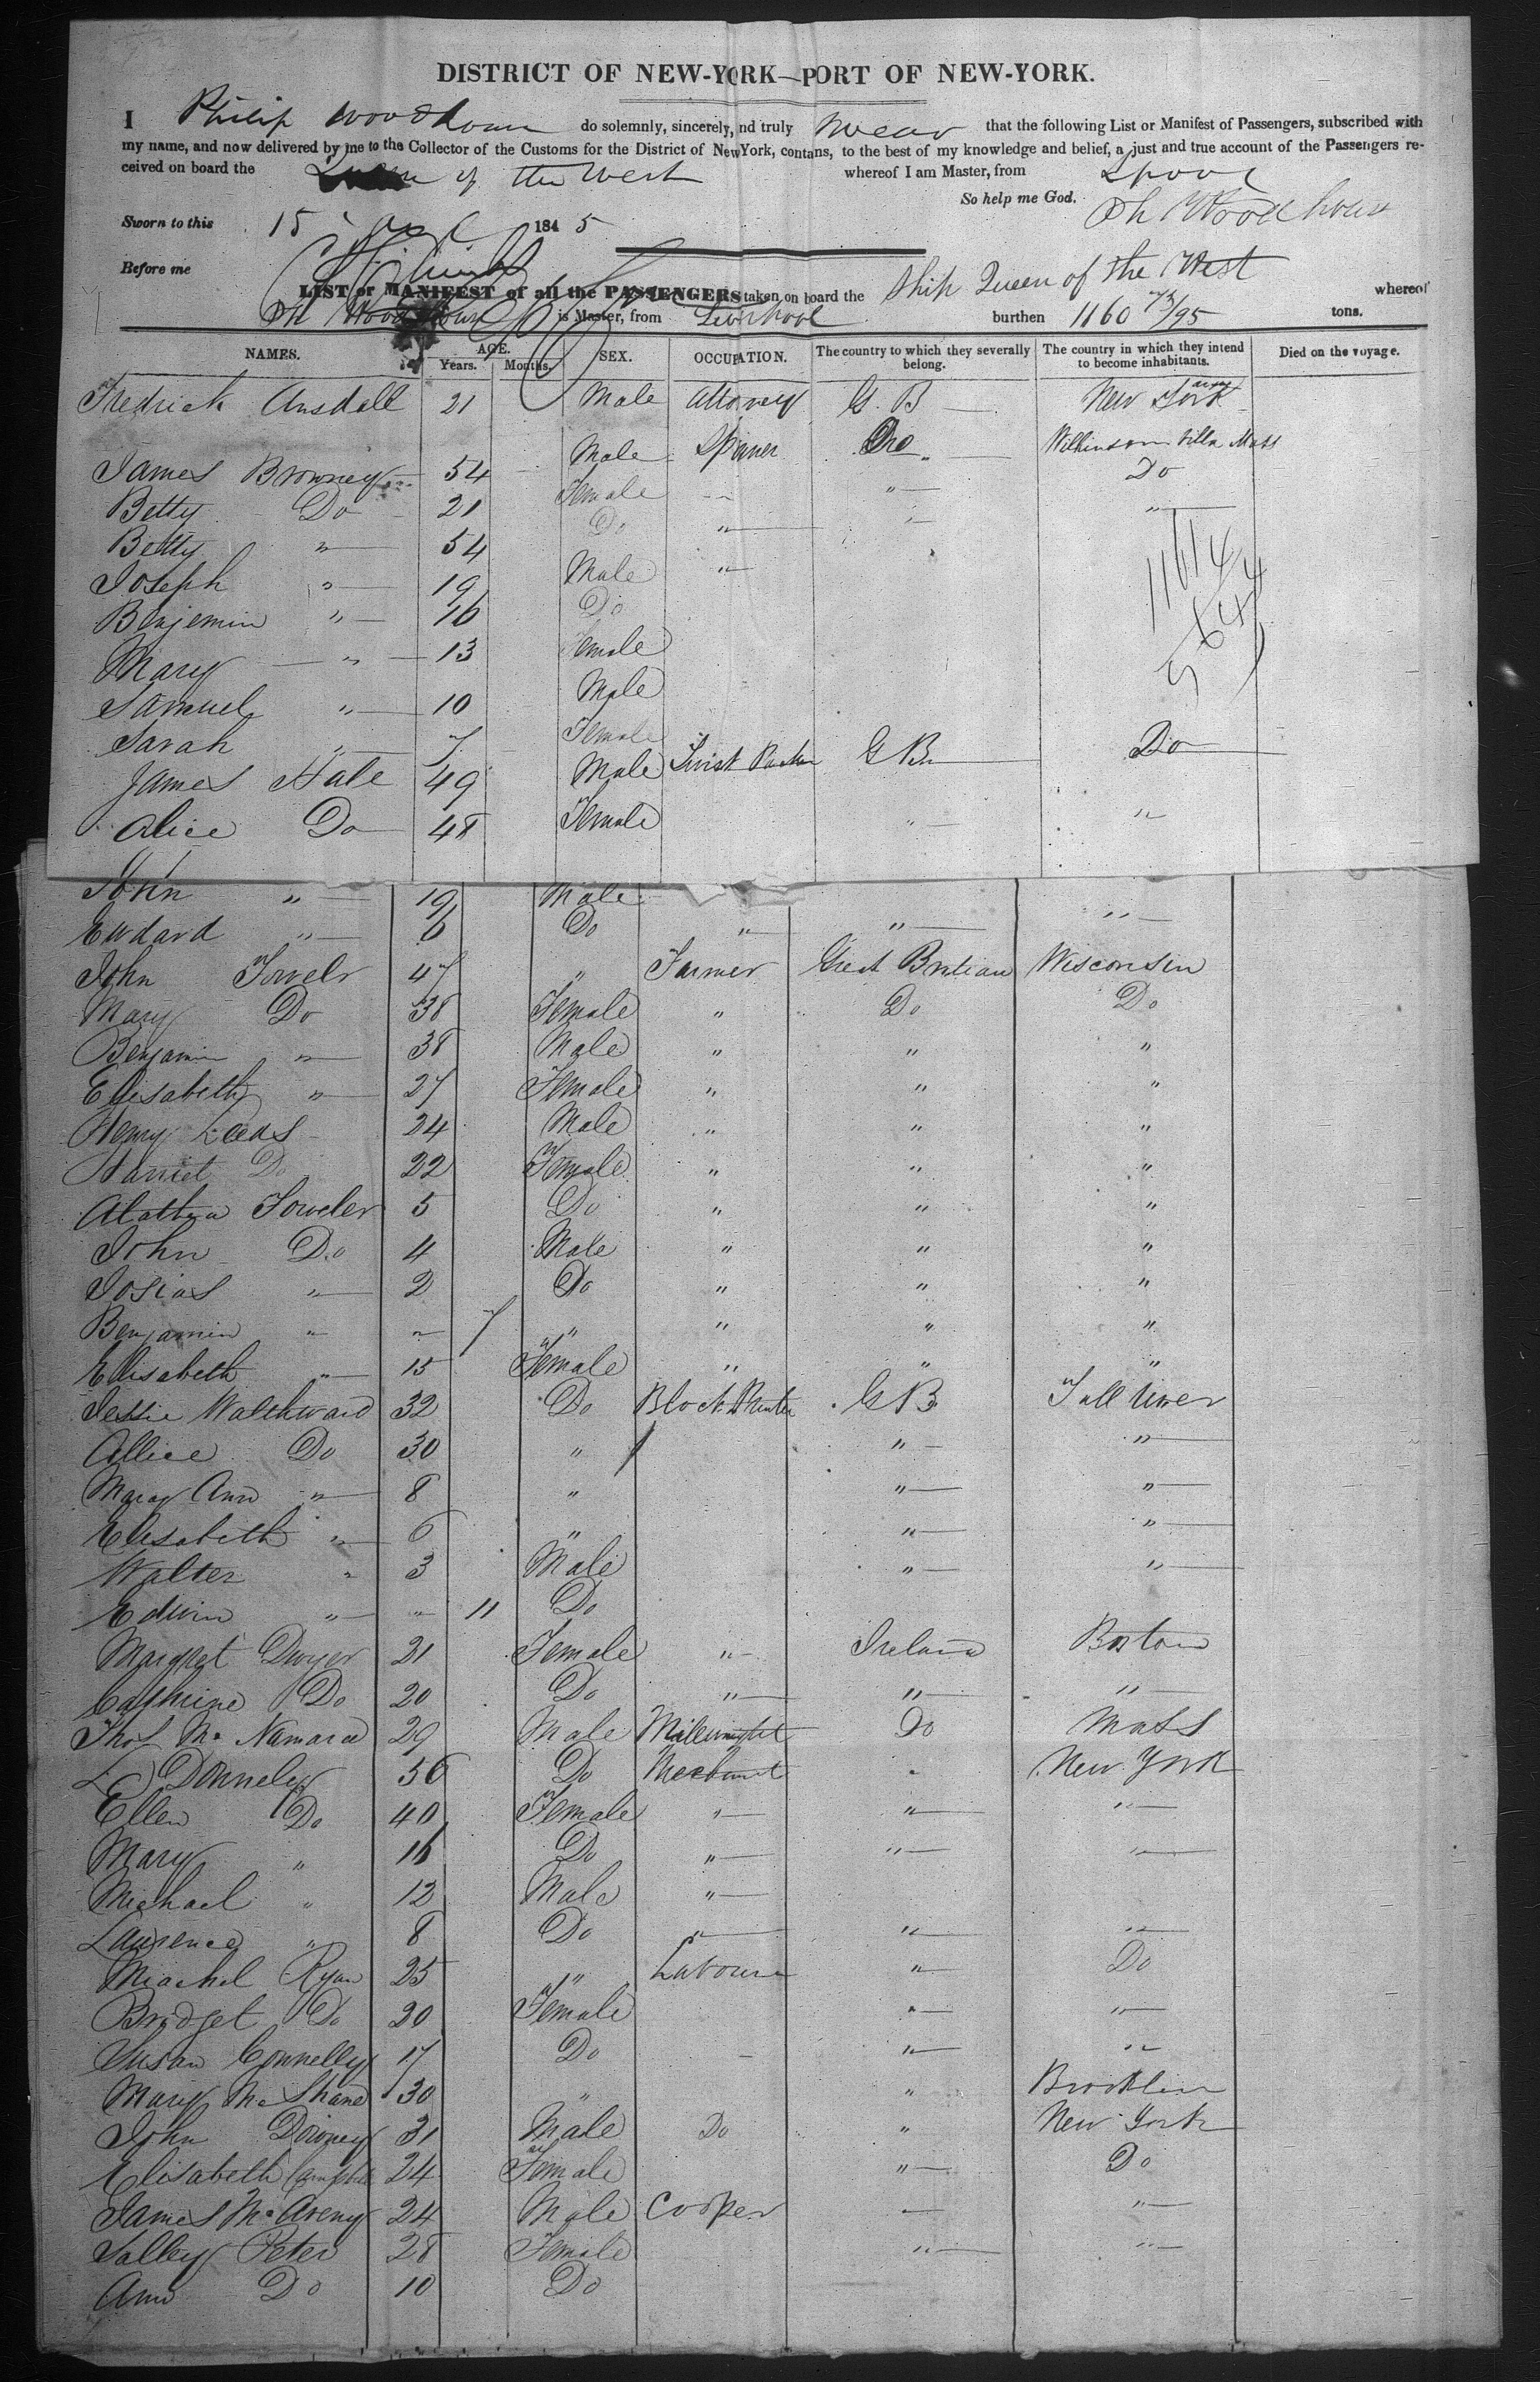 DISTRICT OF NEW-YORK—PORT OF NEW-YORK.
I Philip Woodhouse do solemnly, sincerely, nd truly swear that the following List or Manifest of Passengers, subscribed with
my name, and now delivered by me to the Collector of the Customs for the District of New York, contans, to the best of my knowledge and belief, a just and true account of the Passengers re-
ceived on board the Queen of the West whereof I am Master, from Lpool
So help me God. Ph Woodhouse
Sworn to this 15 1845
Before me
LIST or MANIFEST of all the PASSENGERS taken on board the Ship Queen of the West whereof
Ph Woodhouse is Master, from Liverpool burthen 1160 /95 tons.
NAMES. AGE. Years. Months. SEX. OCCUPATION. The country to which they severally belong. The country in which they intend to become inhabitants. Died on the voyage.
Fredrick Ansdall 21 Male Attorney G. B New York
James Browney 54 Male Spinner Do Wilkinsonvilla Mass
Betty Do 21 Female " Do
Betty " 54 Do " " "
Joseph " 19 Male "
Benjemin " 16 Do
Mary " 13 Female
Samuel " 10 Male
Sarah " 7 Female
James Hale 49 Male Twist G Br Do
Alice Do 48 Female " "
11614
5644
John " 19 Male "
Eudard " 6 Do " "
John Fowelr 47 " Farmer Great Britian Wisconsin
Mary Do 38 Female " Do Do
Benjamin " 38 Male " " "
Elesabeth " 27 Female " " "
Henry Leeds 24 Male " " "
Harriet Do 22 Female " " "
Alathea Fowler 5 Do " " "
John Do 4 Male " " "
Josias " 2 Do " " "
Benjamin " " 7 " " " "
Elisabeth " 15 Female " " "
Jessie 32 Do Block Printer G B Fall River
Allice Do 30 " " "
Maray Ann " 8 " " "
Elesabeth " 6 " " "
Walter " 3 Male " "
Edwin " " 11 Do
Margret Dwyer 21 Female " Ireland Boston
Cathrine Do 20 Do " " "
Thos Mc Namara 29 Male Millwright Do Mass
L Donneley 56 Do Mechanist " New York
Ellen Do 40 Female " " "
Mary " 16 Do " " "
Michael " 12 Male "
Laurence " 8 Do " " "
Miachel Ryan 25 " Labourer " Do
Bridget Do 20 Female " "
Susan Connelly 17 Do " "
Mary Mc Shane 30 " " Brooklin
John Downey 31 Male Do " New York
Elisabeth Campbell 24 Female " Do
James Mc Aveny 24 Male Cooper "
Salley Peter 28 Female " "
Ann Do 10 Do